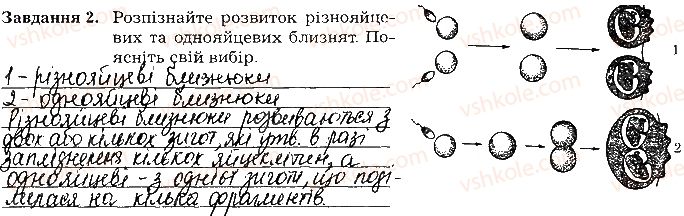 Завдання 2. Розпізнайте розвиток різнояйце-
вих та однояйцевих близнят. По-
ясніть свій вибір.
1 - різнояйцеві близнюки
2 - однояйцеві близнюки
Різнояйцеві близнюки розвиваються з
двох або кількох зигот, які утв. в разі
запліднення кількох яйцеклітин, а
однояйцеві - з однієї зиготи, що поді-
лилася на кілька фрагментів.
1
2
vshkole.com
vshkole.com
vshkole.com